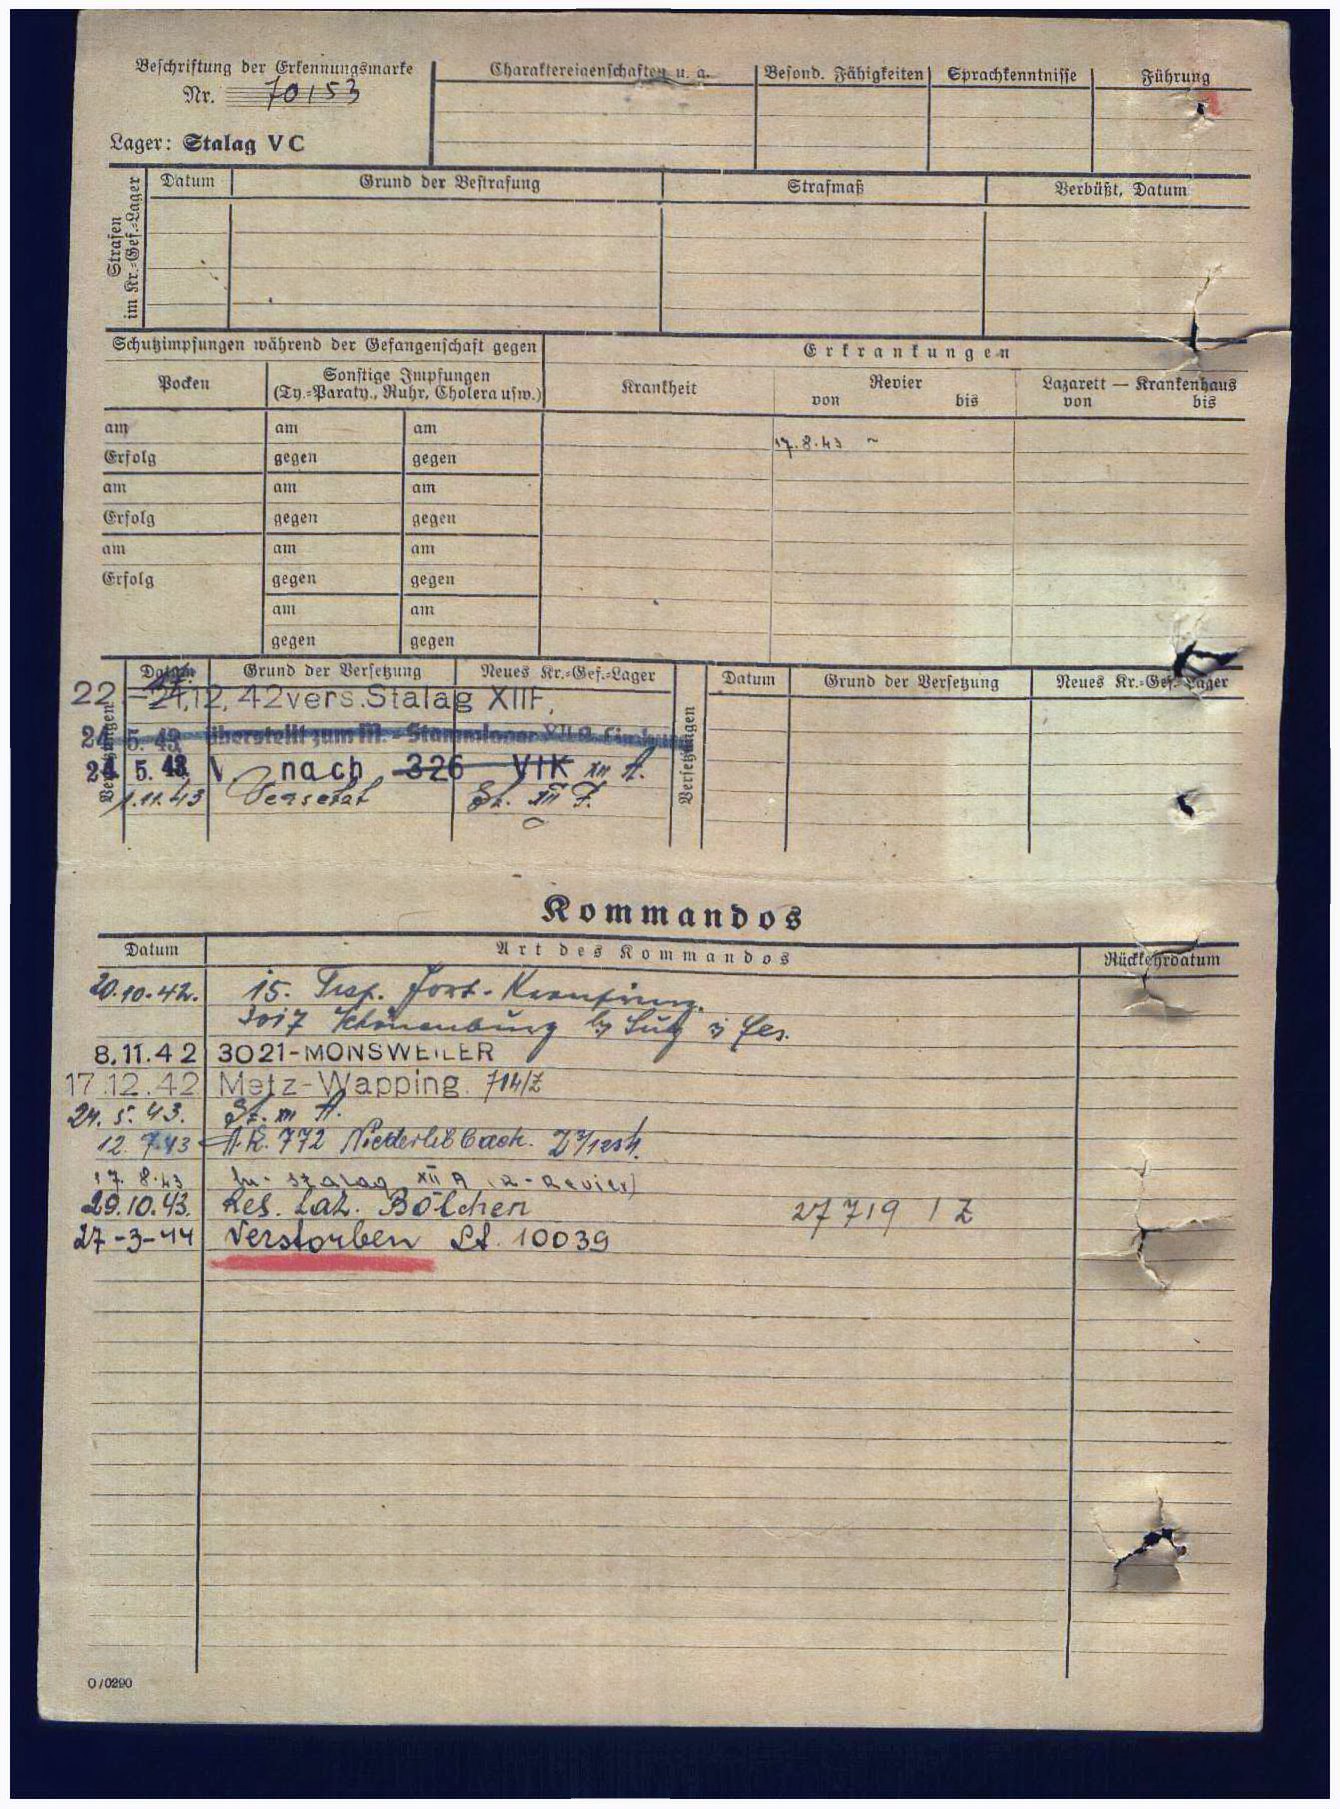 Beschriftung der Erkennungsmarke
Nr. 70153
Lager: Stalag V C
Charaktereigenschaften u. a.
Besond. Fähigkeiten
Sprachkenntnisse
Führung
Strafen
im Kr.=Gef.=Lager
Datum
Grund der Bestrafung
Strafmaß
Verbüßt, Datum
Schutzimpfungen während der Gefangenschaft gegen
Erkrankungen
Pocken
Sonstige Impfungen
(Ty.=Paraty., Ruhr, Cholera usw.)
Krankheit
Revier
von bis
Lazarett — Krankenhaus
von bis
am am am
17.8.43 ~
Erfolg gegen gegen
am am am
Erfolg gegen gegen
am am am
Erfolg gegen gegen
am am
gegen gegen
Versetzungen
Datum Grund der Versetzung Neues Kr.=Gef.=Lager
22 21.12.42 vers. Stalag XII F,
24 5. 43 überstellt zum M.-Stammlager XII A
24. 5. 43 V. nach 326 VI K XII A.
1.11.43 Versetzt St. XII F.
Versetzungen
Datum Grund der Versetzung Neues Kr.=Gef.=Lager
Kommandos
Datum Art des Kommandos Rückkehrdatum
20.10.42. 15.
3017 Schönenburg
8.11.42 3021-MONSWEILER
17.12.42 Metz-Wapping. 714/Z
24. 5. 43. St. XII A.
12. 7.43 A.K. 772
17. 8.43 Stalag XII A (R-Revier)
29.10.43. Res. Laz. Bölchen 27719 1 Z
27-3-44 Verstorben Lt. 10039
O/0290